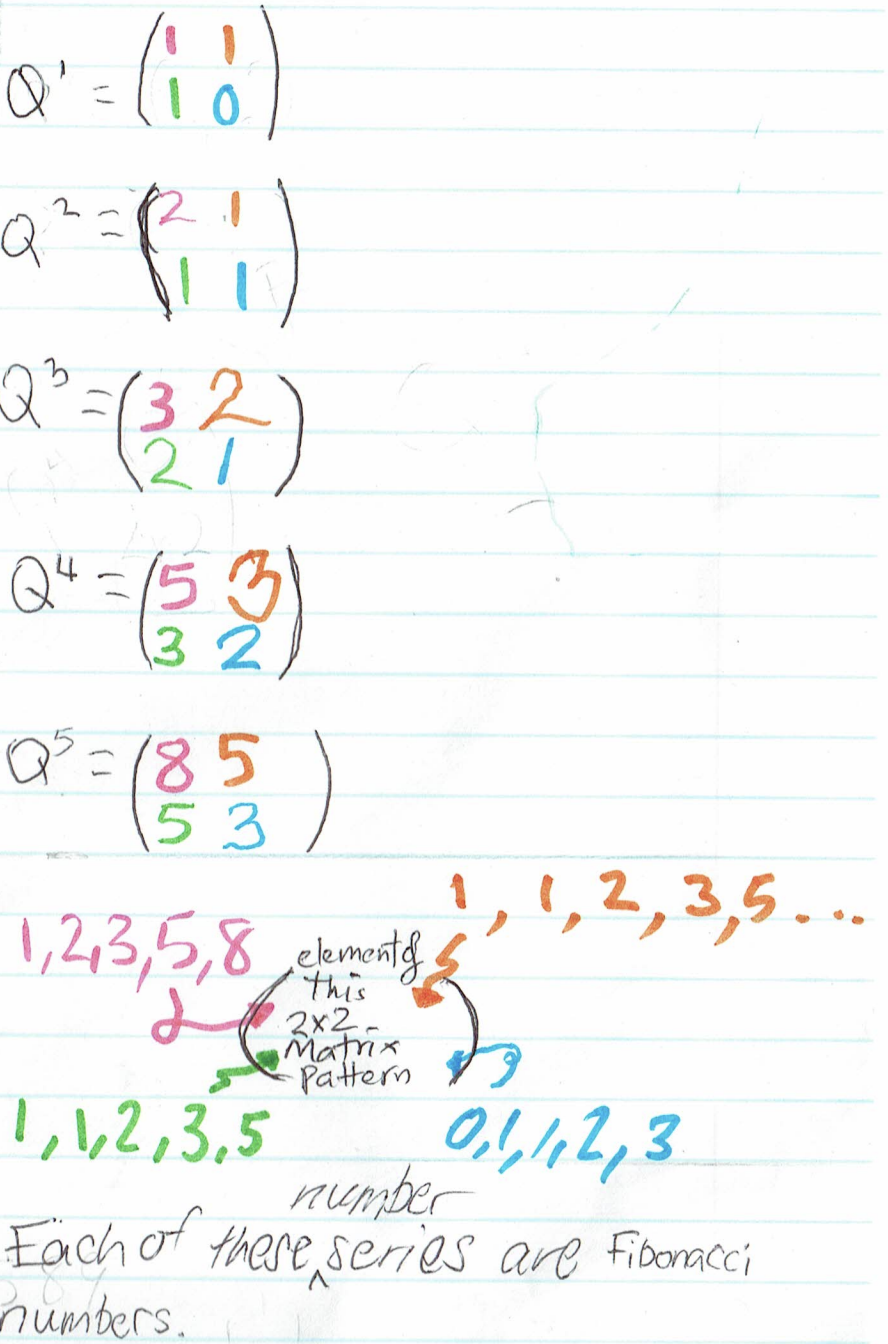 Q¹ = (1 1
1 0)
Q² = (2 1
1 1)
Q³ = (3 2
2 1)
Q⁴ = (5 3
3 2)
Q⁵ = (8 5
5 3)
1, 1, 2, 3, 5...
1,2,3,5,8
element of
this
2x2
Matrix
pattern
1,1,2,3,5
0,1,1,2,3
number
Each of these ^ series are Fibonacci
numbers.